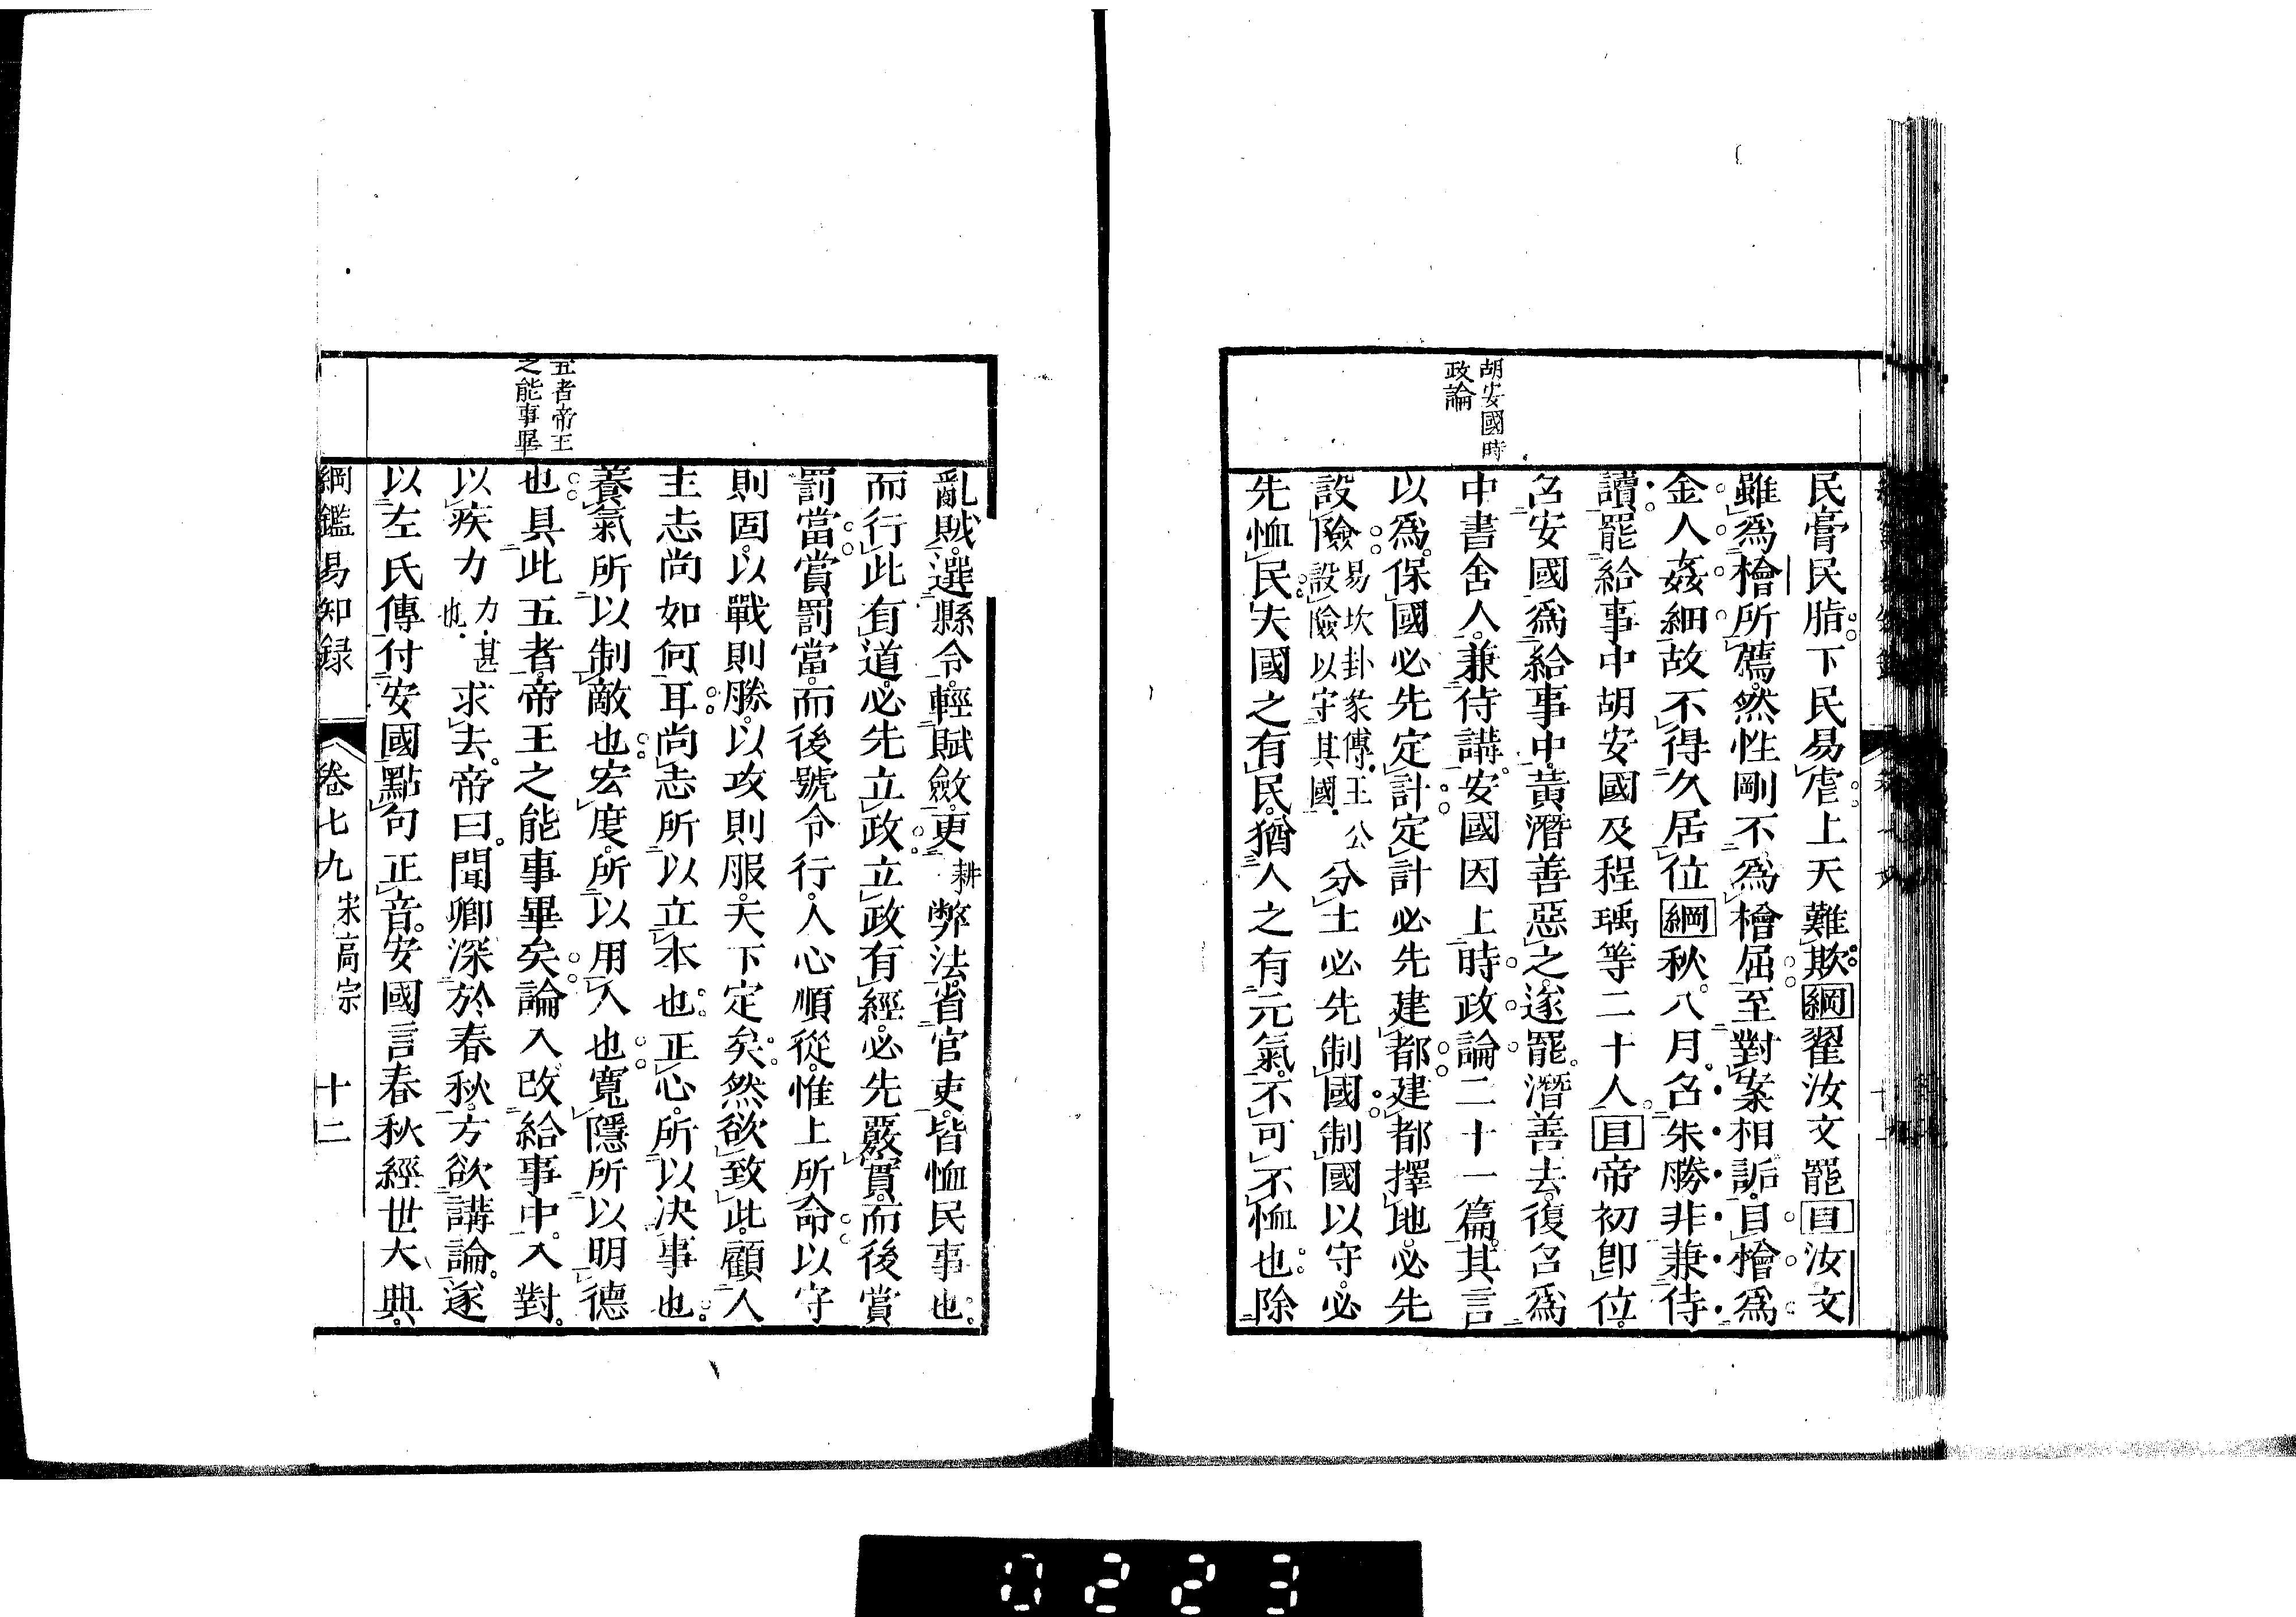 胡安國時
政論
民膏民脂下民易虐上天難欺綱翟汝文罷目汝文
雖爲檜所薦然性剛不爲檜屈至對案相詬目檜爲
金人姦細故不得久居位綱秋八月召朱勝非兼侍
讀罷給事中胡安國及程瑀等二十人目帝初卽位
召安國爲給事中黃潛善惡之遂罷潛善去復召爲
中書舍人兼侍講安國因上時政論二十一篇其言
以爲保國必先定計定計必先建都建都擇地必先
設險易坎卦彖傳王公設險以守其國分土必先制國制國以守必
先恤民夫國之有民猶人之有元氣不可不恤也除
五者帝王
之能事畢
亂賊選縣令輕賦斂更耕弊法省官吏皆恤民事也
而行此有道必先立政立政有經必先覈實而後賞
罰當賞罰當而後號令行人心順從惟上所命以守
則固以戰則勝以攻則服天下定矣然欲致此顧人
主志尚如何耳尚志所以立本也正心所以決事也
養氣所以制敵也宏度所以用人也寬隱所以明德
也具此五者帝王之能事畢矣論入改給事中入對
以疾力力甚也求去帝曰聞卿深於春秋方欲講論遂
以左氏傳付安國點句正音安國言春秋經世大典
綱鑑易知録 卷七九 宋高宗 十二
0223